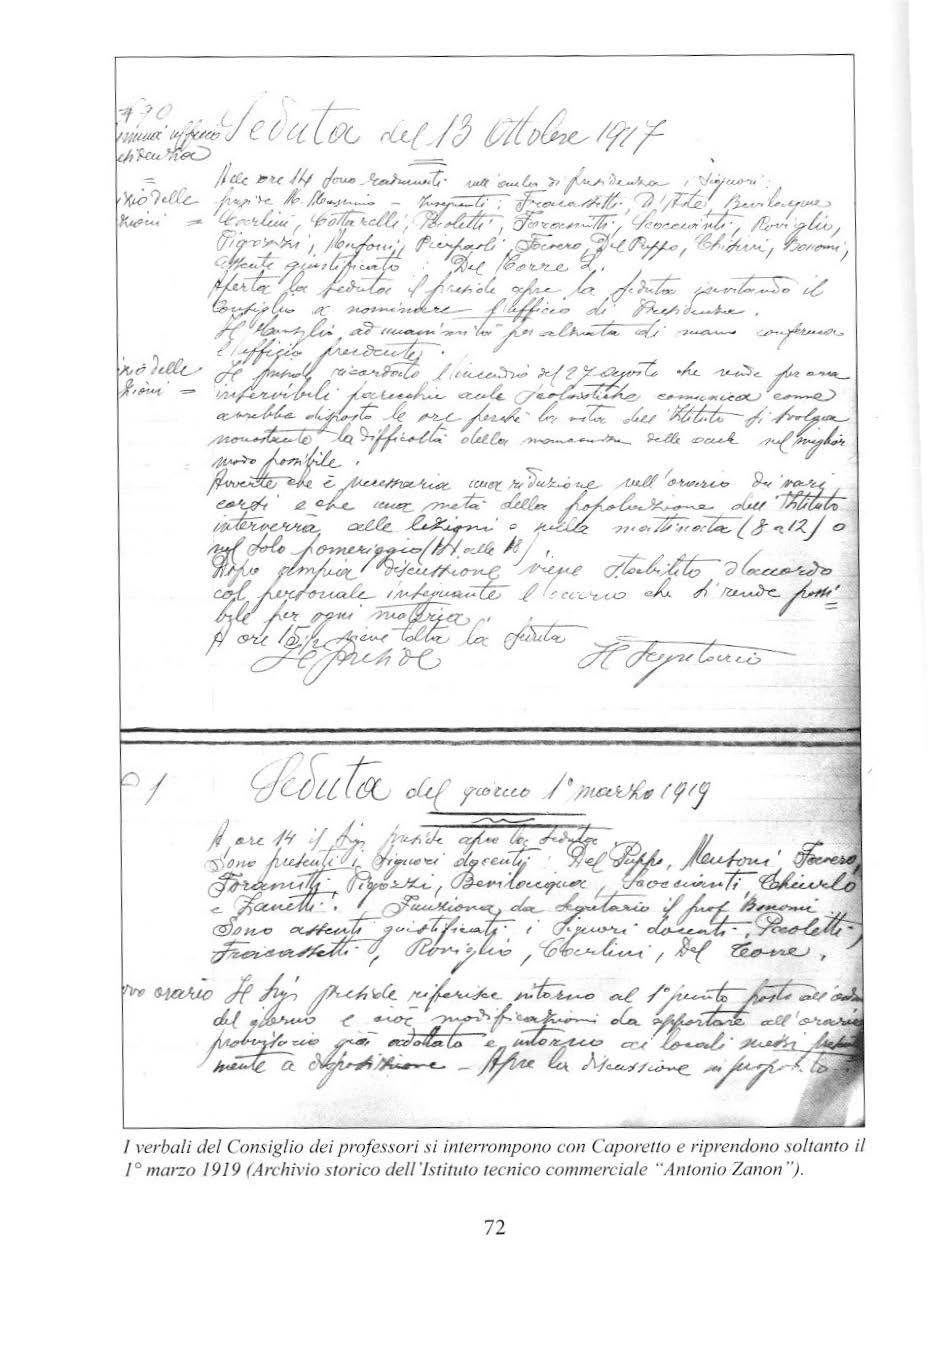 Seduta del 13 Ottobre 1917
Alle ore 14 sono radunati nell'aula di presidenza i Signori:
preside M. – Insegnanti: Fracassetti, D'Aste, Bevilacqua
Carlini, Cottarelli, Paoletti, Foramitti, Scoccianti, Roviglio,
Pigozzi, Menfoni, Pierpaoli, Favero, Del Puppo, Chiurri, Bonomi,
assente giustificato: Del Torre L.
Aperta la seduta il preside apre la seduta invitando il
Consiglio a nominare l'ufficio di Presidenza.
Il Consiglio ad unanimità per alzata di mano conferma
l'ufficio precedente.
zio delle
zioni =
Il preside ricordato l'incendio del 27 agosto che rende per ora
inservibili parecchie aule scolastiche comunica come
avrebbe disposto le ore perchè la vita dell'Istituto si svolga
nonostante la difficoltà della mancanza delle aule nel miglior
modo possibile.
Avverte che è necessaria una riduzione nell'orario dei vari
corsi e che una metà della popolazione dell'Istituto
interverrà alle lezioni o nella mattinata (8 a 12) o
nel solo pomeriggio (14 alle 18)
Dopo ampia discussione viene stabilito d'accordo
col personale insegnante l'orario che si rende possi
bile per ogni materia.
A ore 15 1/2 viene tolta la seduta
Il Preside Il Segretario
1 Seduta del giorno 1° marzo 1919
A ore 14 il Sig. preside apre la seduta
Sono presenti i Signori docenti: Del Puppo, Menfoni, Favero,
Foramitti, Pigozzi, Bevilacqua, Scoccianti, Chiurlo
e Zanetti. Funziona da segretario il prof Bonomi
Sono assenti giustificati i Signori docenti: Paoletti
Fracassetti, Roviglio, Carlini, Del Torre.
ovo orario Il Sig. preside riferisce intorno al 1° punto posto all'ordine
del giorno e cioè modificazioni da apportare all'orario
provvisorio già adottato e intorno ai locali messi
mente a disposizione – Apre la discussione in proposito.
I verbali del Consiglio dei professori si interrompono con Caporetto e riprendono soltanto il
1° marzo 1919 (Archivio storico dell'Istituto tecnico commerciale "Antonio Zanon").
72